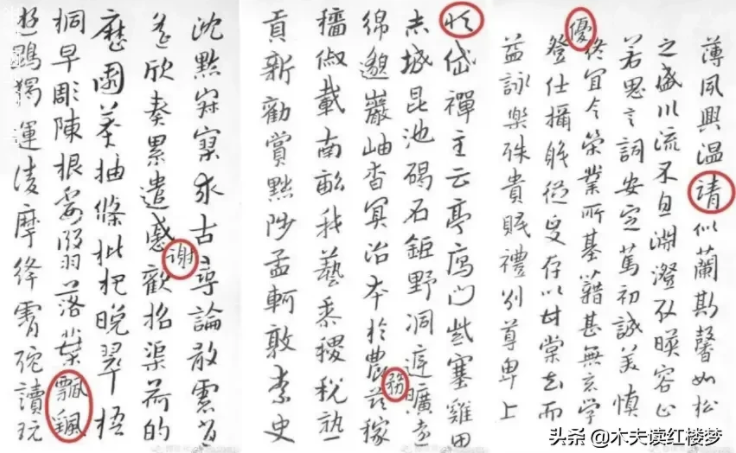 薄夙興温請似蘭斯馨如松
之盛川流不息淵澄取暎容止
若思言詞安定篤初誠美慎
終宜令榮業所基籍甚無竟學
優登仕攝職從政存以甘棠去而
益詠樂殊貴賤禮別尊卑上
恒岱禪主云亭鴈門紫塞雞田
赤城昆池碣石鉅野洞庭曠遠
綿邈巖岫杳冥治本於農務茲稼
穡俶載南畝我藝黍稷稅熟
貢新勸賞黜陟孟軻敦素史
沈默寂寥求古尋論散慮逍
遙欣奏累遣慼謝歡招渠荷的
歷園莽抽條枇杷晚翠梧
桐早彫陳根委翳落葉飄颻
遊鵾獨運淩摩絳霄耽讀玩
头条 @木夫读红楼梦